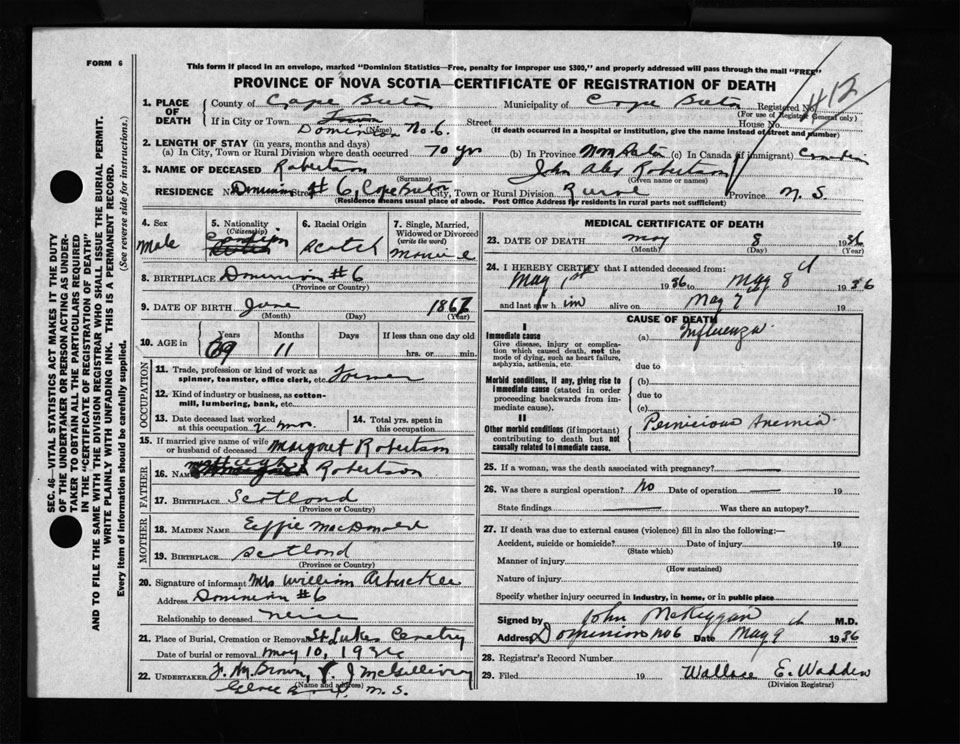 FORM 6
This form if placed in an envelope, marked "Dominion Statistics—Free, penalty for improper use $300," and properly addressed will pass through the mail "FREE"
PROVINCE OF NOVA SCOTIA—CERTIFICATE OF REGISTRATION OF DEATH
1. PLACE OF DEATH
County of Cape Breton Municipality of Cape Breton Registered No. 412
(For use of Registrar General only)
If in City or Town Town Street House No.
Dominion No. 6.
(Name) (If death occurred in a hospital or institution, give the name instead of street and number)
2. LENGTH OF STAY (in years, months and days)
(a) In City, Town or Rural Division where death occurred 70 yrs (b) In Province (c) In Canada (if immigrant) Canadian
3. NAME OF DECEASED Robertson John Alex Robertson
(Surname) (Given name or names)
RESIDENCE No. Dominion Street # 6, Cape Breton City, Town or Rural Division Rural Province N. S.
(Residence means usual place of abode. Post Office Address for residents in rural parts not sufficient)
4. Sex Male
5. Nationality (Citizenship) Canadian
6. Racial Origin Scotch
7. Single, Married, Widowed or Divorced (write the word)
8. BIRTHPLACE Dominion #6
(Province or Country)
9. DATE OF BIRTH June 1867
(Month) (Day) (Year)
10. AGE in Years Months Days If less than one day old
69 11 hrs. or min.
OCCUPATION
11. Trade, profession or kind of work as spinner, teamster, office clerk, etc. Farmer
12. Kind of industry or business, as cotton-mill, lumbering, bank, etc.
13. Date deceased last worked at this occupation 2 mos.
14. Total yrs. spent in this occupation
15. If married give name of wife or husband of deceased Margaret Robertson
FATHER
16. NAME Hugh Robertson
17. BIRTHPLACE Scotland
(Province or Country)
MOTHER
18. MAIDEN NAME Effie MacDonald
19. BIRTHPLACE Scotland
(Province or Country)
20. Signature of informant Mrs William Arbuckle
Address Dominion #6
Relationship to deceased neice
21. Place of Burial, Cremation or Removal St Lukes Cemetry
Date of burial or removal May 10, 1936
22. UNDERTAKER F. M. Brown, J McGillivry
(Name and address)
Glace Bay N. S.
MEDICAL CERTIFICATE OF DEATH
23. DATE OF DEATH May 8 1936
(Month) (Day) (Year)
24. I HEREBY CERTIFY that I attended deceased from:
May 1st 1936 to May 8th 1936
and last saw him alive on May 7th 19
CAUSE OF DEATH
I
Immediate cause (a) Influenza
Give disease, injury or complication which caused death, not the mode of dying, such as heart failure, asphyxia, asthenia, etc.
due to
Morbid conditions, if any, giving rise to immediate cause (stated in order proceeding backwards from immediate cause).
(b)
due to
(c)
II
Other morbid conditions (if important) contributing to death but not causally related to immediate cause.
Pernicious Anemia
25. If a woman, was the death associated with pregnancy?
26. Was there a surgical operation? No Date of operation 19
State findings Was there an autopsy?
27. If death was due to external causes (violence) fill in also the following:—
Accident, suicide or homicide? Date of injury 19
(State which)
Manner of injury
(How sustained)
Nature of injury
Specify whether injury occurred in industry, in home, or in public place
Signed by John McKeggan M.D.
Address Dominion No 6 Date May 9th 1936
28. Registrar's Record Number
29. Filed 19 Wallace E. Wadden
(Division Registrar)
SEC. 46—VITAL STATISTICS ACT MAKES IT THE DUTY
OF THE UNDERTAKER OR PERSON ACTING AS UNDER-
TAKER TO OBTAIN ALL THE PARTICULARS REQUIRED
IN THE "CERTIFICATE OF REGISTRATION OF DEATH"
AND TO FILE THE SAME WITH THE DIVISION REGISTRAR WHO SHALL ISSUE THE BURIAL PERMIT.
WRITE PLAINLY WITH UNFADING INK. THIS IS A PERMANENT RECORD.
Every item of information should be carefully supplied. (See reverse side for instructions.)